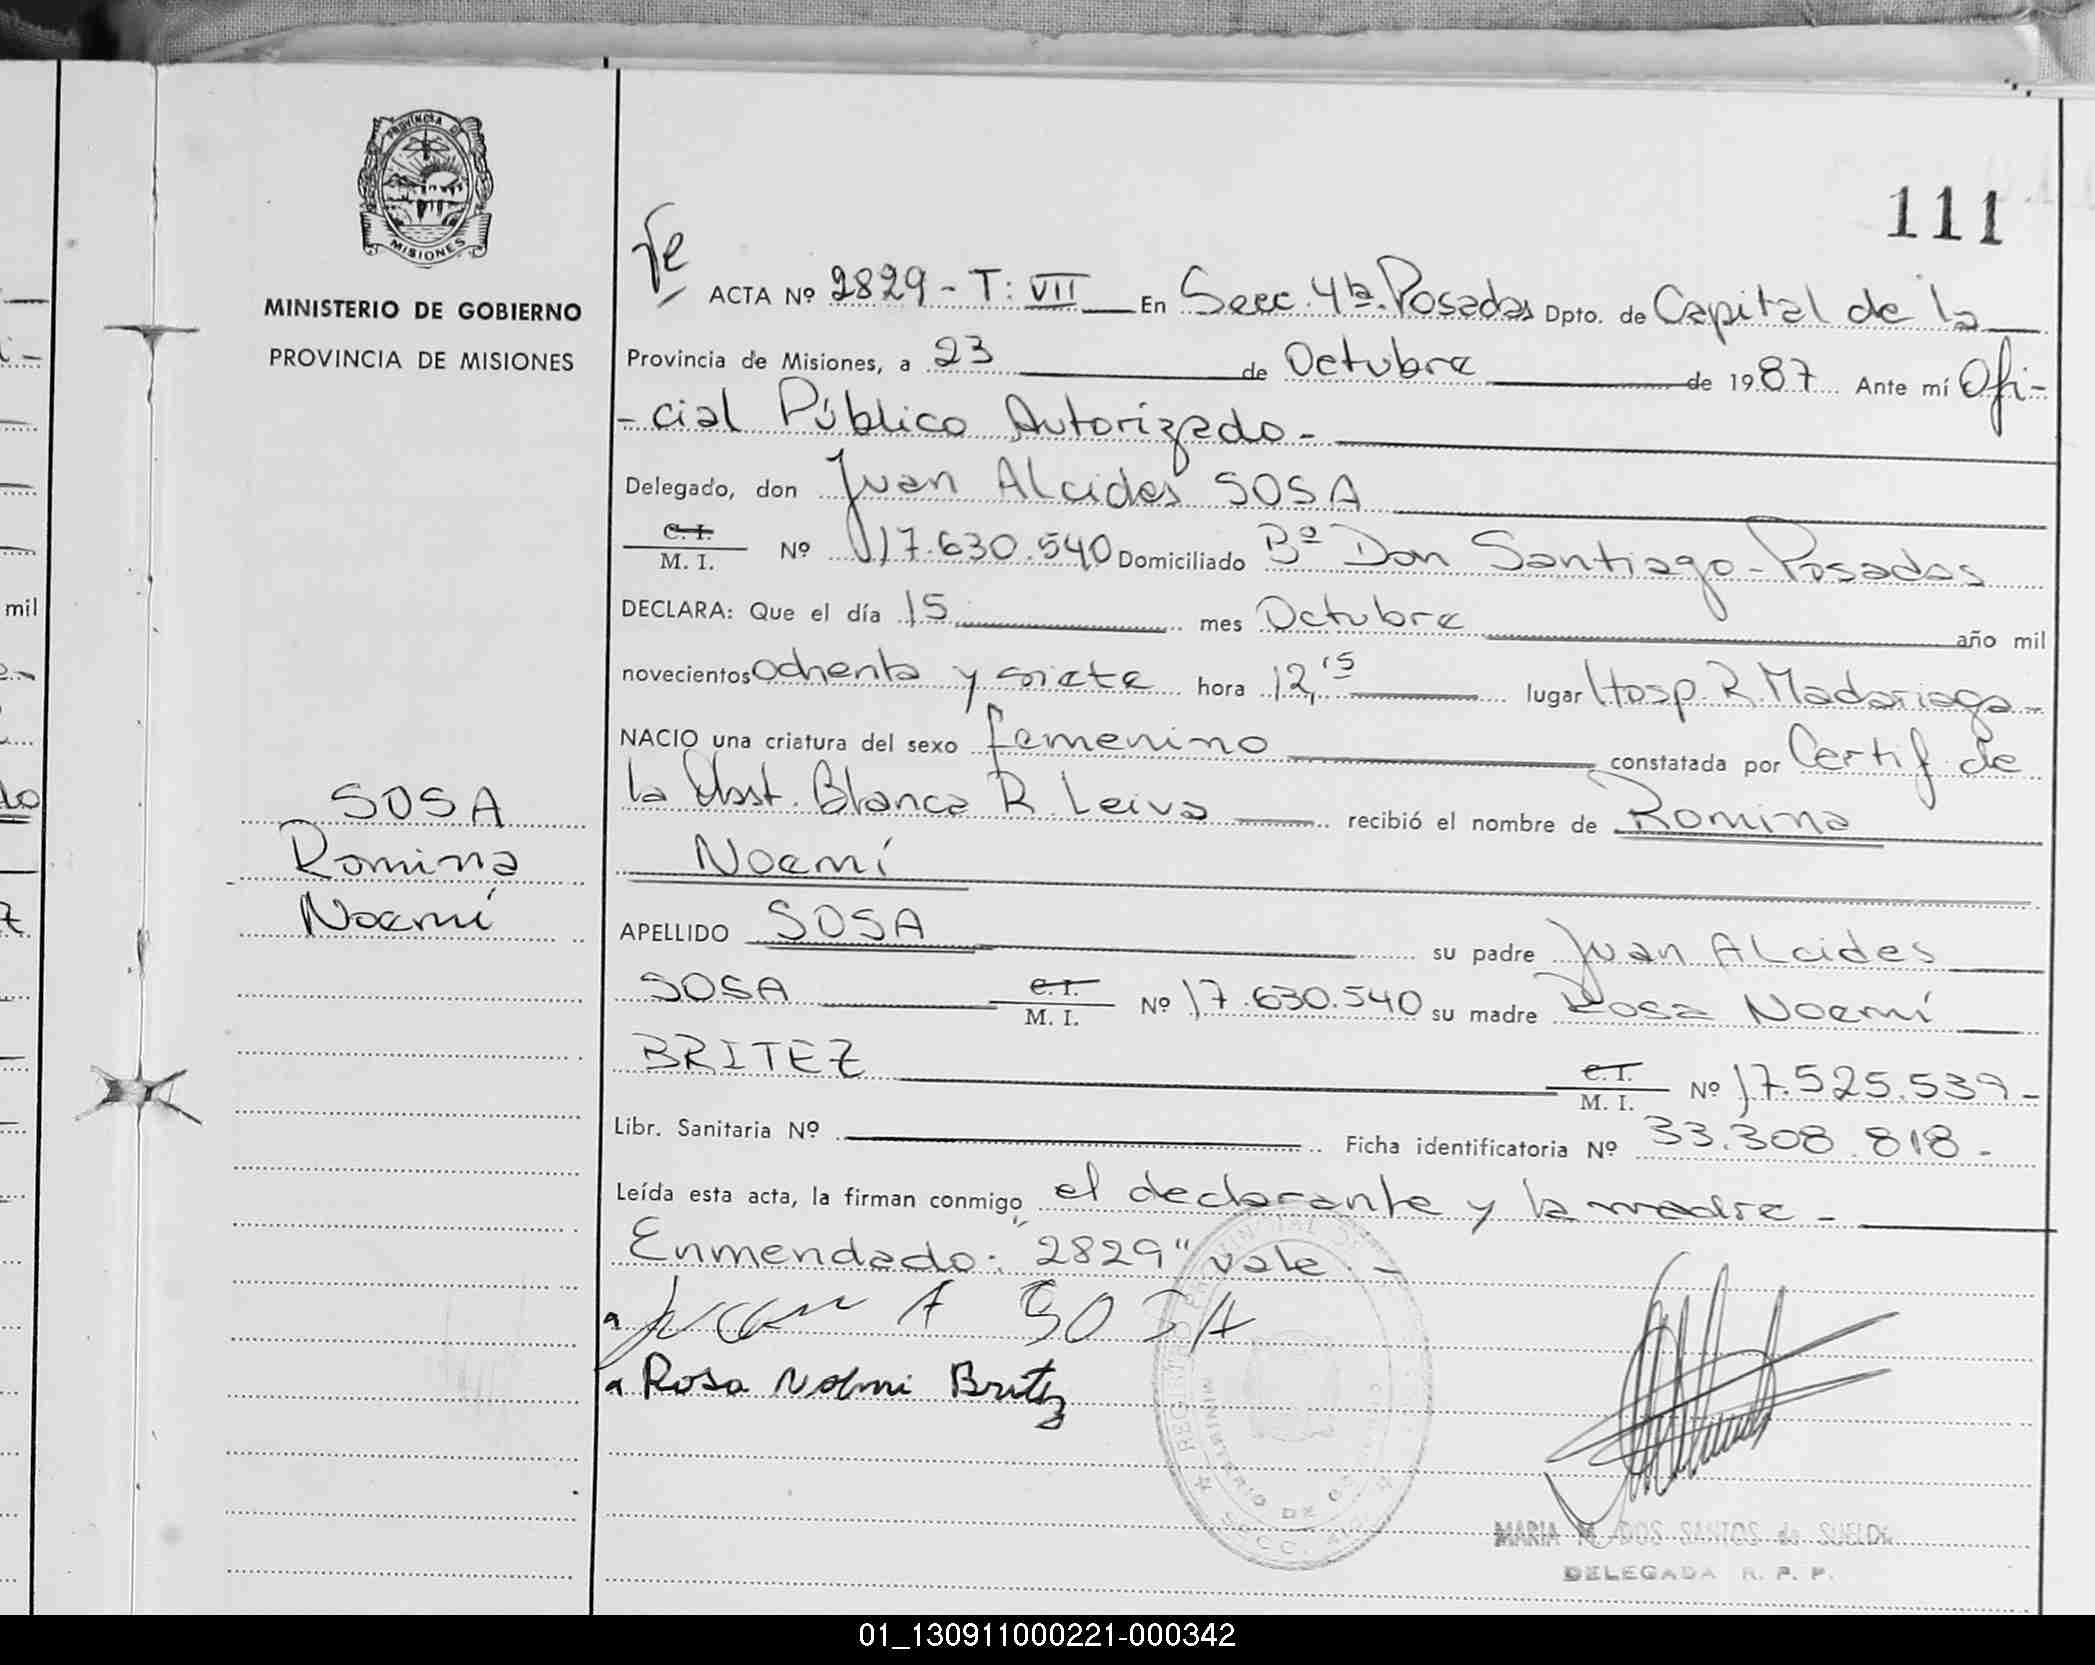 PROVINCIA DE
MISIONES
MINISTERIO DE GOBIERNO
PROVINCIA DE MISIONES
SOSA
Romina
Noemí
111
ACTA Nº 2829 - T: VII En Secc. 4ta. Posadas Dpto. de Capital de la
Provincia de Misiones, a 23 de Octubre de 1987 Ante mí Ofi-
-cial Público Autorizado-
Delegado, don Juan Alcides SOSA
C. I.
M. I. Nº 17.630.540 Domiciliado Bº Don Santiago-Posadas
DECLARA: Que el día 15 mes Octubre año mil
novecientos ochenta y siete hora 12,15 lugar Hosp. R. Madariaga-
NACIO una criatura del sexo femenino constatada por Certif. de
la Obst. Blanca R. Leiva recibió el nombre de Romina
Noemí
APELLIDO SOSA su padre Juan Alcides
SOSA C. I. M. I. Nº 17.630.540 su madre Rosa Noemí
BRITEZ C. I. M. I. Nº 17.525.539-
Libr. Sanitaria Nº Ficha identificatoria Nº 33.308.818-
Leída esta acta, la firman conmigo, el declarante y la madre-
Enmendado: "2829" vale.-
Juan A SOSA
Rosa Noemi Britez
REGISTRO PROVINCIAL
MINISTERIO DE
SECC.
MARIA M. DOS SANTOS de SUELDO
DELEGADA R. P. P.
mil
01_130911000221-000342